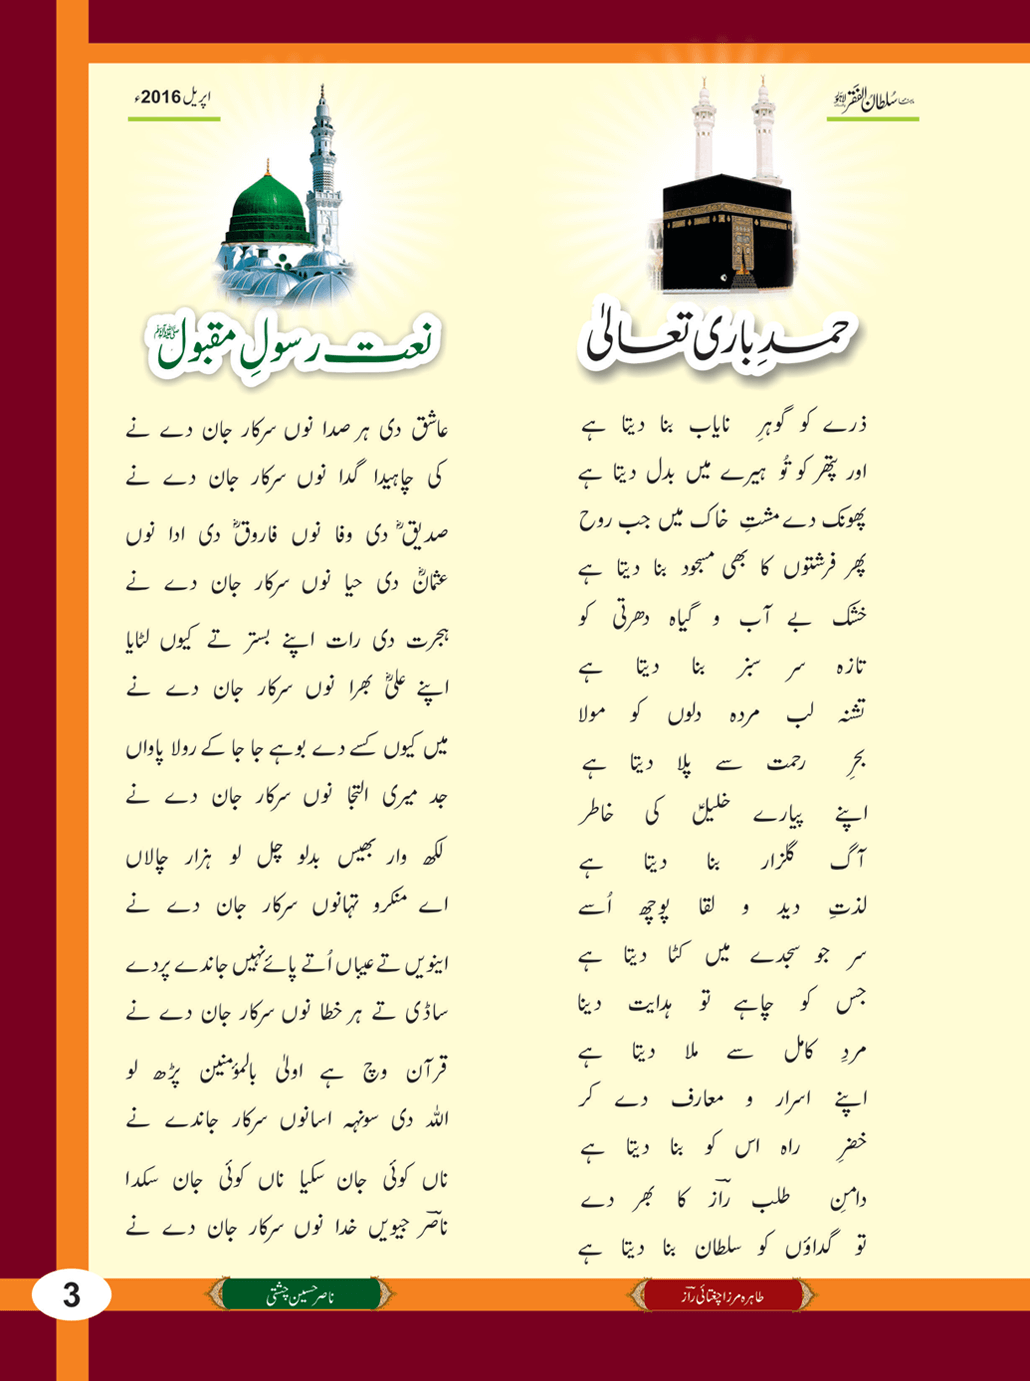 سُلطان الفقر لاہور
اپریل 2016ء
حمدِ باری تعالیٰ
ذرے کو گوہرِ نایاب بنا دیتا ہے
اور پتھر کو تُو ہیرے میں بدل دیتا ہے
پھونک دے مشتِ خاک میں جب روح
پھر فرشتوں کا بھی مسجود بنا دیتا ہے
خشک بے آب و گیاہ دھرتی کو
تازہ سر سبز بنا دیتا ہے
تشنہ لب مردہ دلوں کو مولا
بحرِ رحمت سے پلا دیتا ہے
اپنے پیارے خلیلؑ کی خاطر
آگ گلزار بنا دیتا ہے
لذتِ دید و لقا پوچھ اُسے
سر جو سجدے میں کٹا دیتا ہے
جس کو چاہے تو ہدایت دینا
مردِ کامل سے ملا دیتا ہے
اپنے اسرار و معارف دے کر
خضرِ راہ اس کو بنا دیتا ہے
دامنِ طلب رازؔ کا بھر دے
تو گداؤں کو سلطان بنا دیتا ہے
طاہرہ مرزا چغتائی رازؔ
نعت رسولِ مقبول ﷺ
عاشق دی ہر صدا نوں سرکار جان دے نے
کی چاہیدا گدا نوں سرکار جان دے نے
صدیقؓ دی وفا نوں فاروقؓ دی ادا نوں
عثمانؓ دی حیا نوں سرکار جان دے نے
ہجرت دی رات اپنے بستر تے کیوں لٹایا
اپنے علیؓ بھرا نوں سرکار جان دے نے
میں کیوں کسے دے بوہے جا جا کے رولا پاواں
جد میری التجا نوں سرکار جان دے نے
لکھ وار بھیس بدلو چل لو ہزار چالاں
اے منکرو تہانوں سرکار جان دے نے
اینویں تے عیباں اُتے پائے نہیں جاندے پردے
ساڈی تے ہر خطا نوں سرکار جان دے نے
قرآن وچ ہے اولیٰ بالمؤمنین پڑھ لو
اللہ دی سونہہ اسانوں سرکار جاندے نے
ناں کوئی جان سکیا ناں کوئی جان سکدا
ناصرؔ جیویں خدا نوں سرکار جان دے نے
ناصر حسین چشتی
3